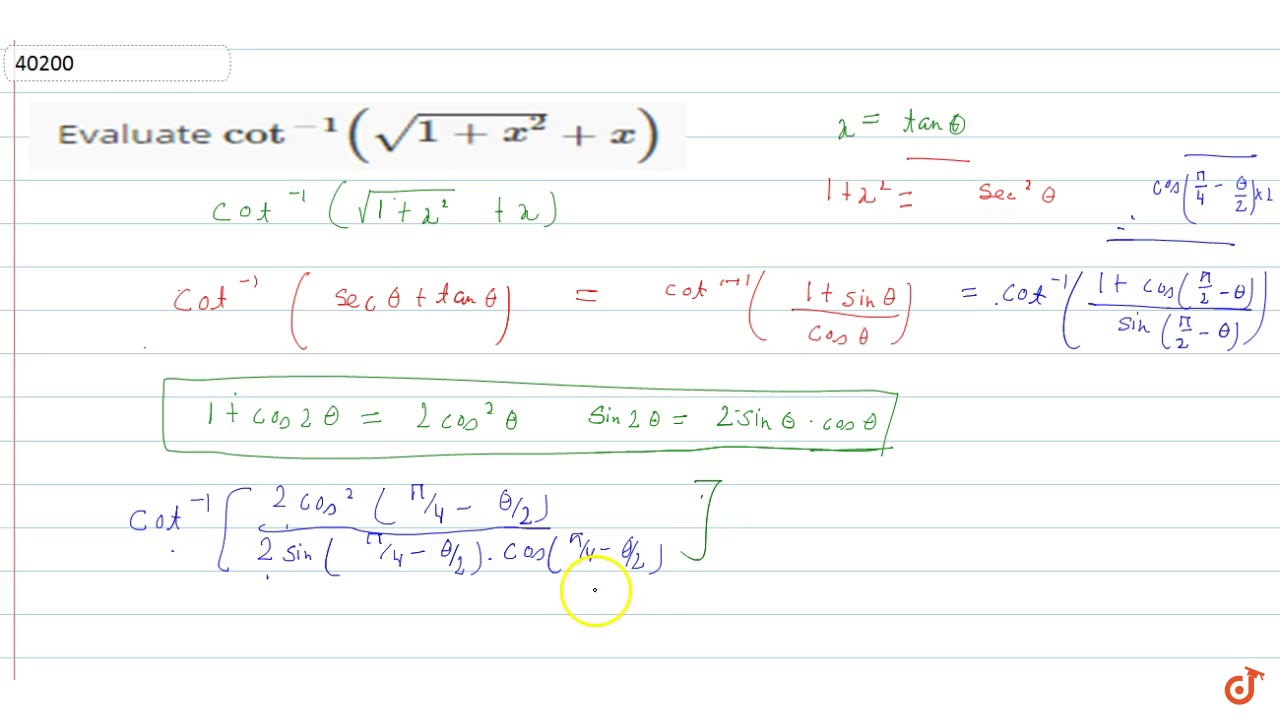 40200
Evaluate cot⁻¹(√(1 + x²) + x)
x = tan θ
1+x² = sec² θ
cos(π/4 - θ/2)×2
cot⁻¹ (√(1+x²) + x)
cot⁻¹ (sec θ + tan θ) = cot⁻¹ ((1+ sin θ)/(cos θ)) = cot⁻¹ ((1 + cos(π/2 - θ))/(sin(π/2 - θ)))
1+ cos 2θ = 2 cos² θ sin 2θ = 2 sin θ · cos θ
cot⁻¹ [(2 cos² (π/4 - θ/2))/(2 sin (π/4 - θ/2) · cos (π/4 - θ/2))]